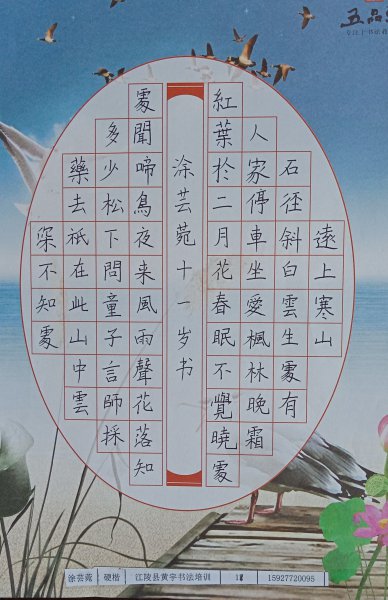 五品
遠上寒山
石径斜白雲生處有
人家停車坐愛楓林晚霜
紅葉於二月花春眠不覺曉處
涂芸菀十一岁书
處聞啼鳥夜来風雨聲花落知
多少松下問童子言師採
藥去祇在此山中雲
深不知處
涂芸菀 硬楷 江陵县黄宇书法培训 15927720095